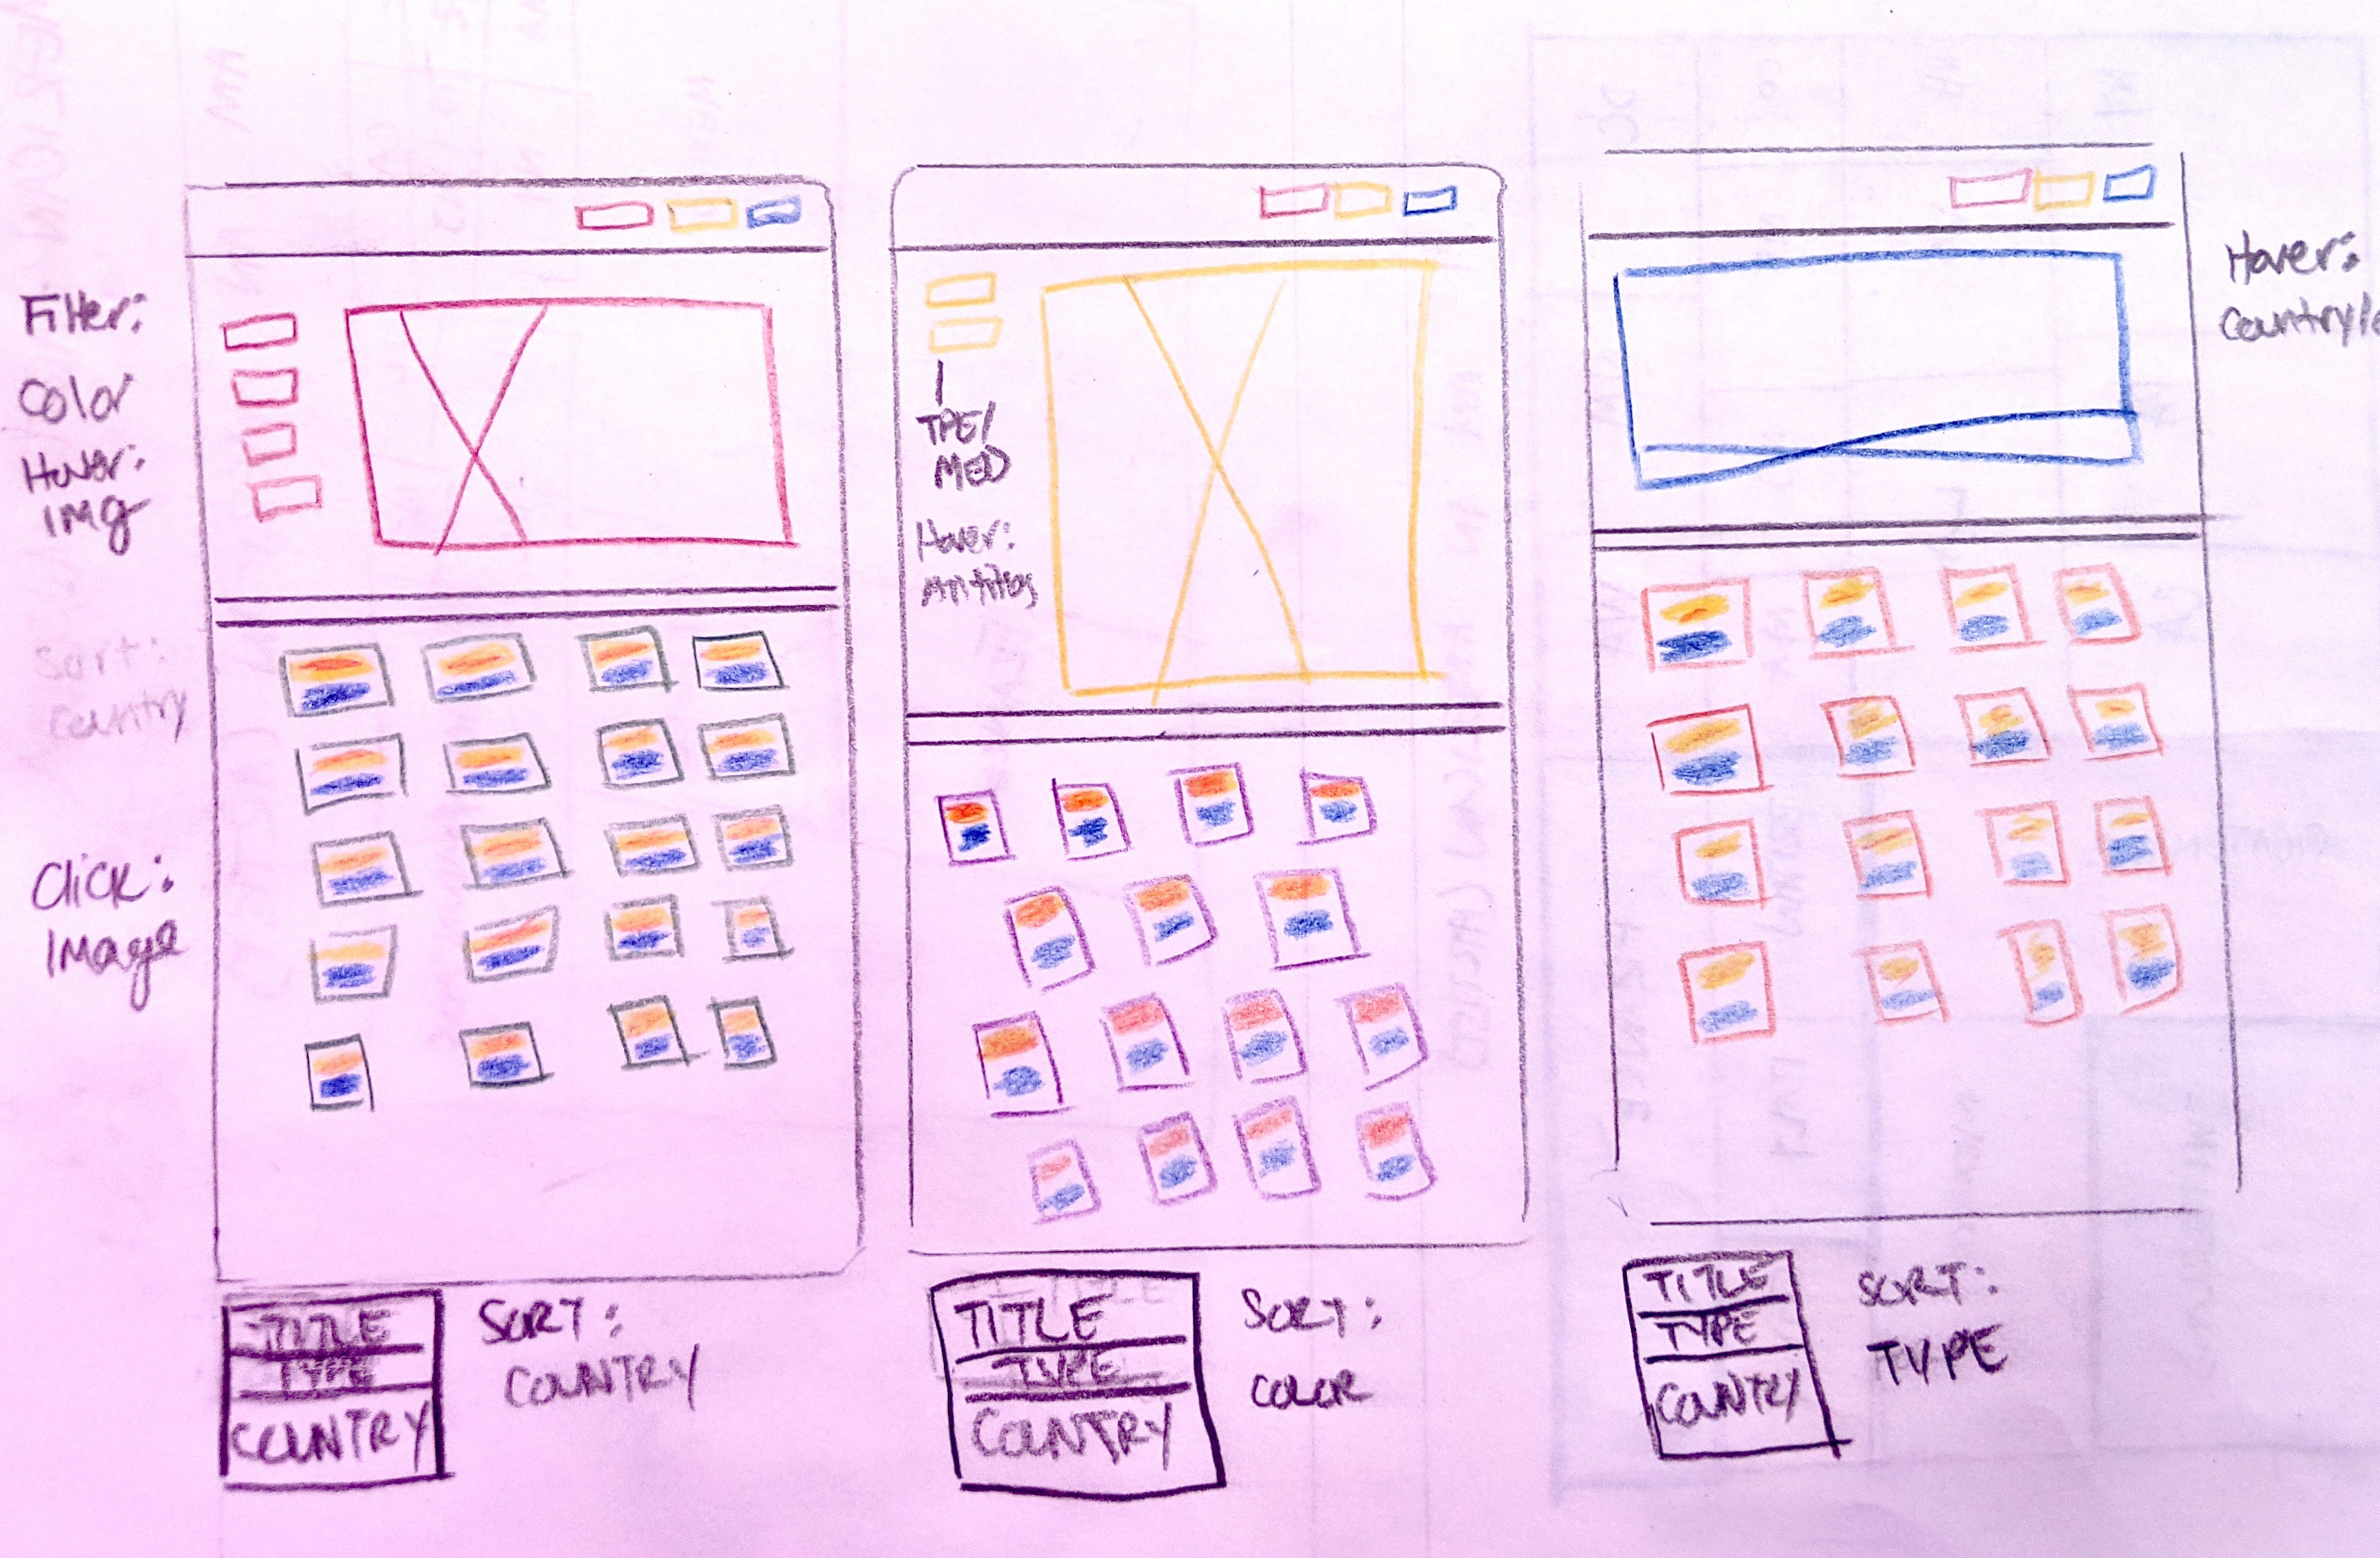 Filter:
Color
Hover:
IMG
Sort:
Country
Click:
Image
TITLE
TYPE
COUNTRY
SORT:
COUNTRY
TPE/
MED
Hover:
TITLE
TYPE
COUNTRY
SORT:
COLOR
Hover:
TITLE
TYPE
COUNTRY
SORT:
TYPE